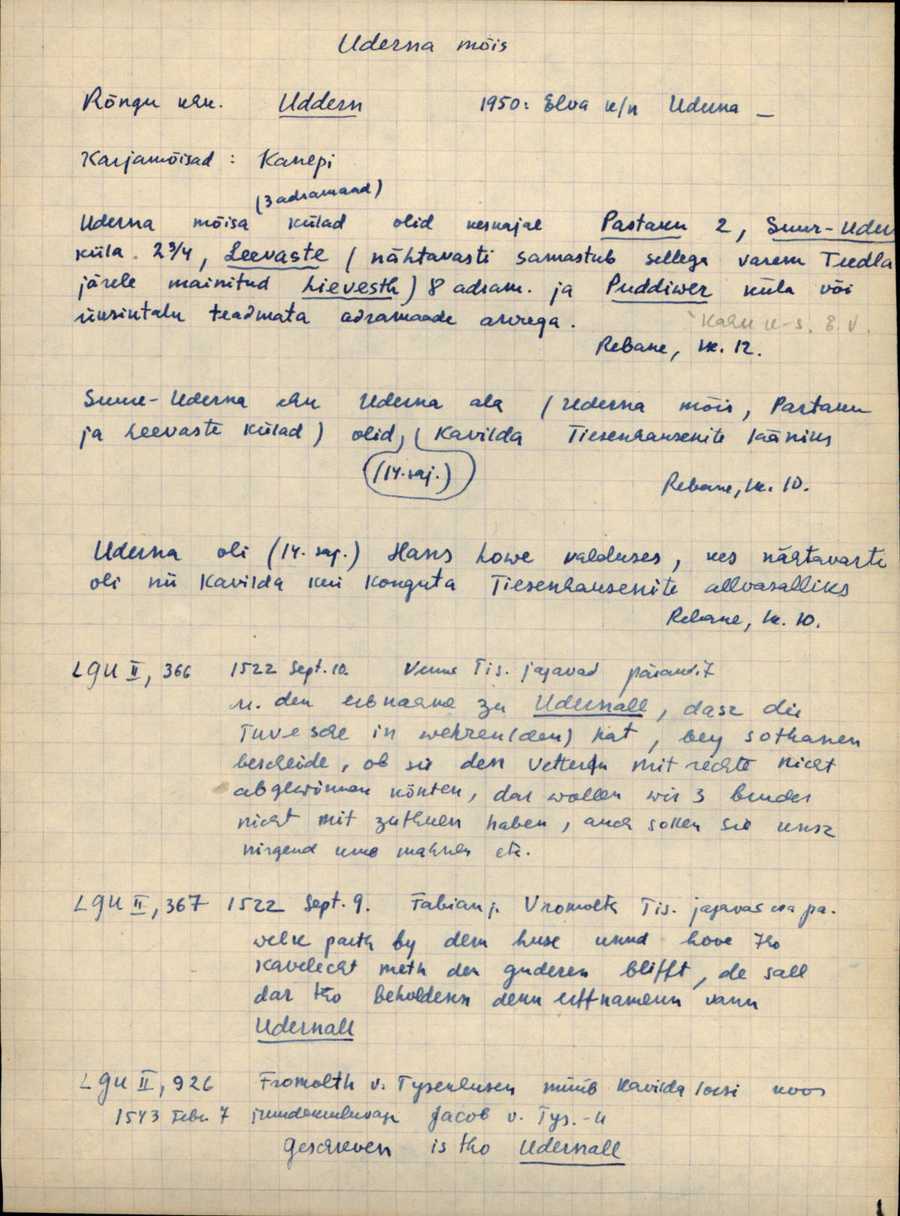 Uderna mõis
Rõngu khk. Uddern 1950: Elva k/n Uderna _
Karjamõisad : Kanepi
(3 adramaad)
Uderna mõisa külad olid keskajal Pastaku 2, Suur-Uder
küla 2 3/4, Leevaste (nähtavasti samastub sellega varem Tuedla
järele mainitud Lievesth) 8 adram. ja Puddiwer küla või
üksiktalu teadmata adramaade arvuga.
Rebane, lk. 12.
Suure-Uderna ehk Uderna ala (Uderna mõis, Pastaku
ja Leevaste külad) olid, Kavilda Tiesenhausenite lääniks
(14. saj.)
Rebane, lk. 10.
Uderna oli (14. saj.) Hans Lowe valduses, kes nähtavasti
oli nii Kavilda kui Konguta Tiesenhausenite allvasalliks
Rebane, lk. 10.
LGU II, 366 1522 Sept. 10. Tis. jagavad
den erbname zu Udernall, dasz die
in wehren(den) hat, bey sothanen
bescheide, ob sie den Vettern mit rechte nicht
abgewinnen könten, dar wollen wir 3 bruder
nicht mit zuthuen haben, auch sollen sie unsz
nirgend umb mahnen etc.
LGU II, 367 1522 Sept. 9. Fabian j. Vromolth Tis. jagavas
welk parth by dem huse unnd hove tho
Kavelecht meth den guderen blifft, de sall
dar tho beholdenn denn erffnamenn vann
Udernall
LGU II, 926 Fromolth v. Tysenhusen müüb Kavilda lossi koos
1543 Febr. 7 Jacob v. Tys.-ile
Geschreven is tho Udernall